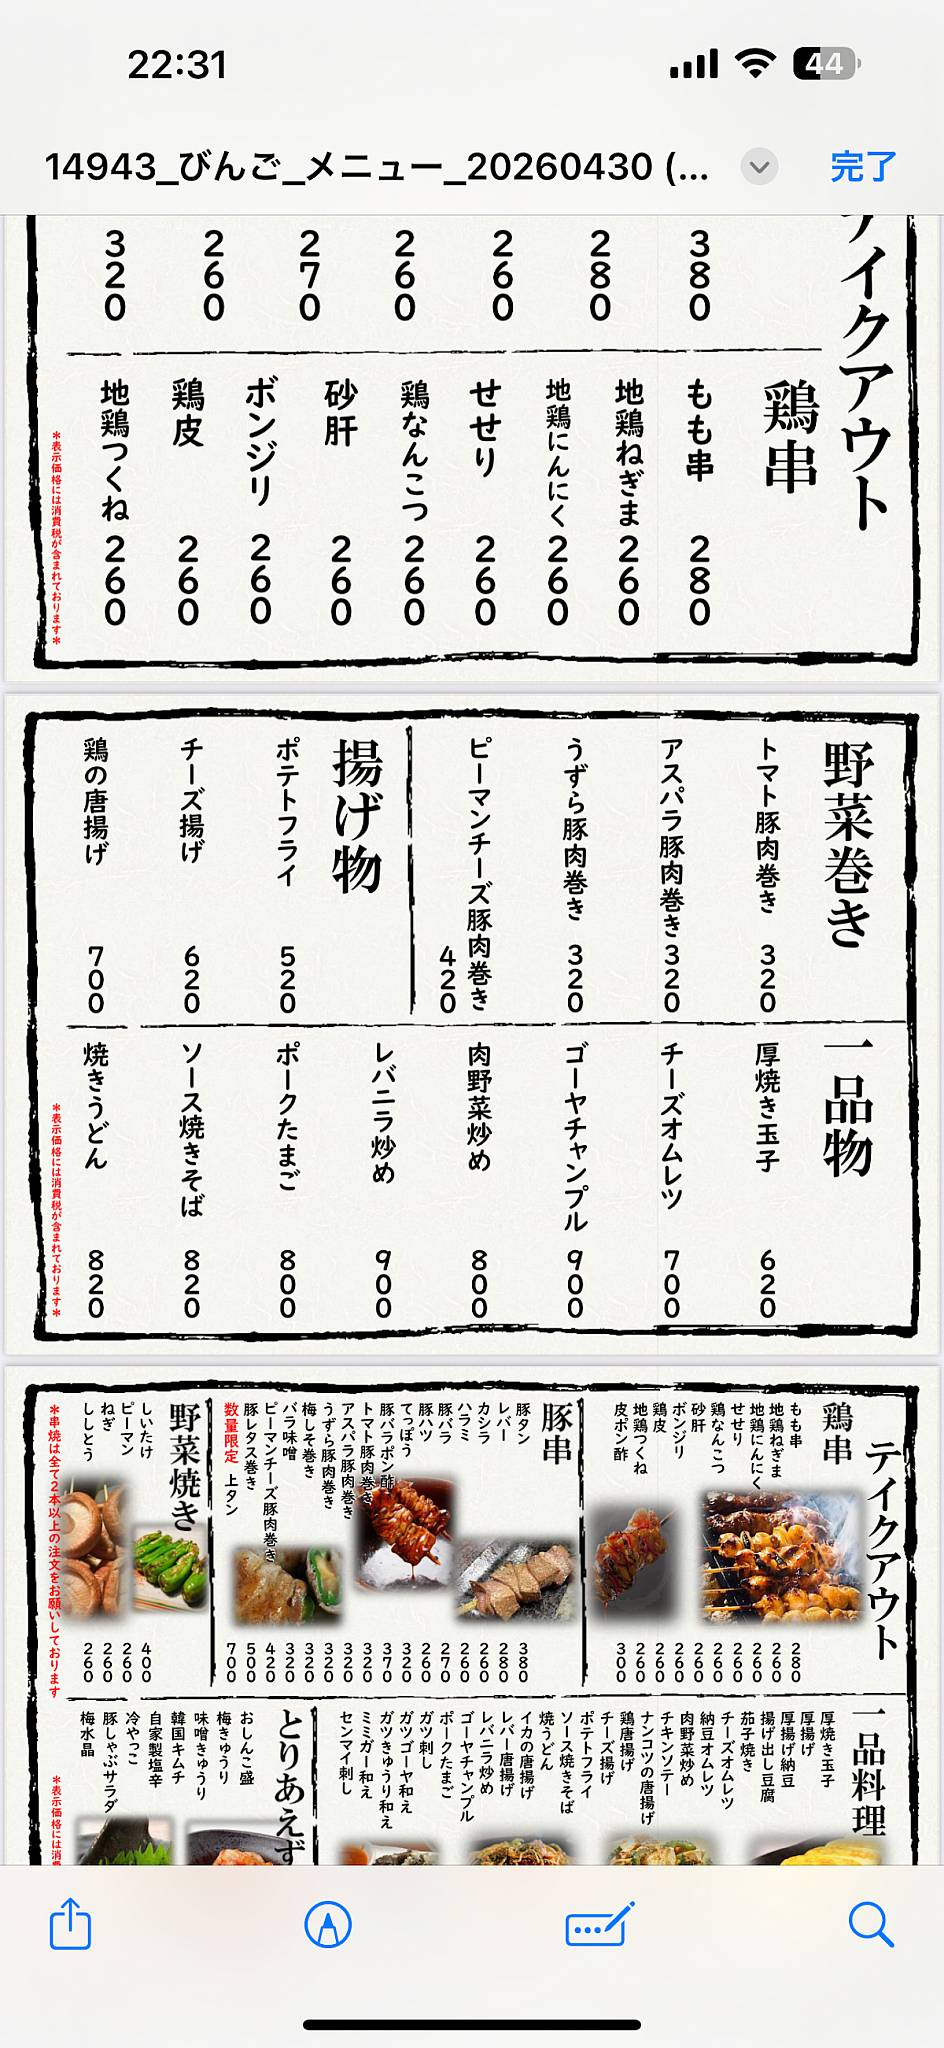 22:31
44
14943_びんご_メニュー_20260430 (...
完了
テイクアウト
380
280
260
260
270
260
320
鶏串
もも串 280
地鶏ねぎま 260
地鶏にんにく 260
せせり 260
鶏なんこつ 260
砂肝 260
ボンジリ 260
鶏皮 260
地鶏つくね 260
*表示価格には消費税が含まれております*
野菜巻き
トマト豚肉巻き 320
アスパラ豚肉巻き 320
うずら豚肉巻き 320
ピーマンチーズ豚肉巻き 420
揚げ物
ポテトフライ 520
チーズ揚げ 620
鶏の唐揚げ 700
一品物
厚焼き玉子 620
チーズオムレツ 700
ゴーヤチャンプル 900
肉野菜炒め 800
レバニラ炒め 900
ポークたまご 800
ソース焼きそば 820
焼きうどん 820
*表示価格には消費税が含まれております*
テイクアウト
鶏串
もも串 280
地鶏ねぎま 260
地鶏にんにく 260
せせり 260
鶏なんこつ 260
砂肝 260
ボンジリ 260
鶏皮 260
地鶏つくね 260
皮ポン酢 300
豚串
豚タン 380
レバー 280
カシラ 260
ハラミ 260
豚バラ 270
豚ハツ 260
てっぽう 320
豚バラポン酢 370
トマト豚肉巻き 320
アスパラ豚肉巻き 320
うずら豚肉巻き 320
梅しそ巻き 320
バラ味噌 320
ピーマンチーズ豚肉巻き 420
豚レタス巻き 500
数量限定 上タン 700
野菜焼き
しいたけ 400
ピーマン 260
ねぎ 260
ししとう 260
*串焼は全て2本以上の注文をお願いしております
一品料理
厚焼き玉子
厚揚げ
厚揚げ納豆
揚げ出し豆腐
茄子焼き
チーズオムレツ
納豆オムレツ
肉野菜炒め
チキンソテー
ナンコツの唐揚げ
鶏唐揚げ
チーズ揚げ
ポテトフライ
ソース焼きそば
焼うどん
イカの唐揚げ
レバー唐揚げ
レバニラ炒め
ゴーヤチャンプル
ポークたまご
ガツ刺し
ガツゴーヤ和え
ガツきゅうり和え
ミミガー和え
センマイ刺し
とりあえず
おしんこ盛
梅きゅうり
味噌きゅうり
韓国キムチ
自家製塩辛
冷やっこ
豚しゃぶサラダ
梅水晶
*表示価格には消費